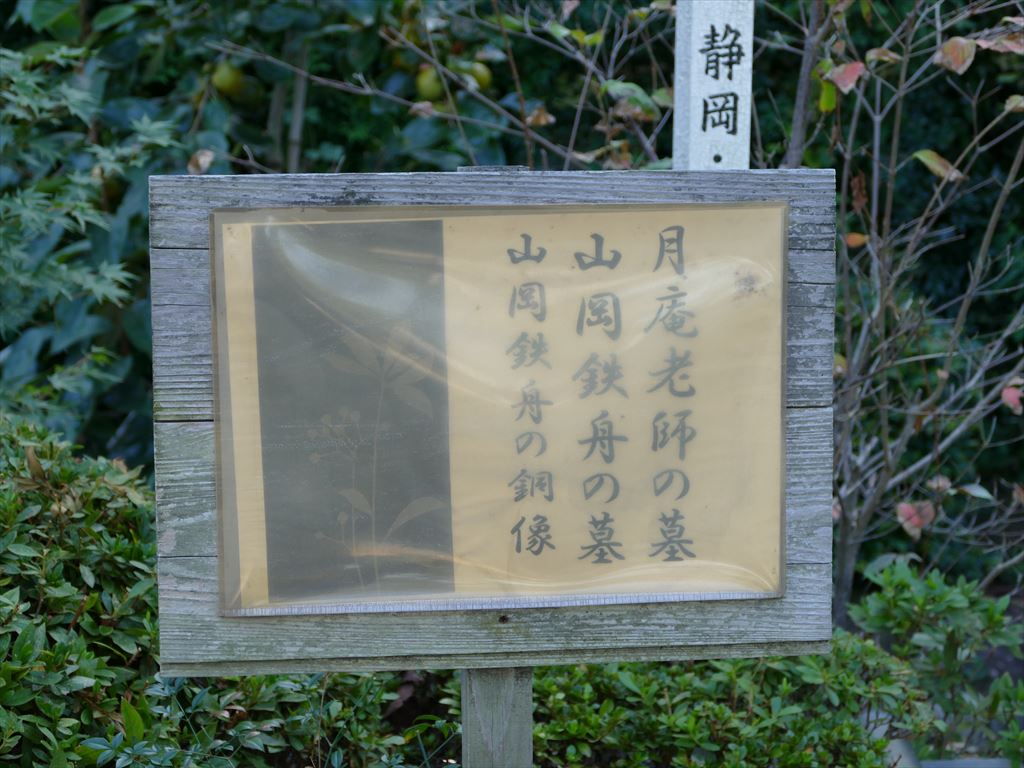 静岡・
月庵老師の墓
山岡鉄舟の墓
山岡鉄舟の銅像